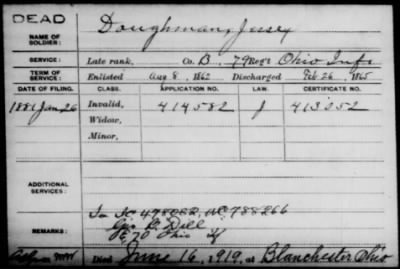 DEAD
NAME OF SOLDIER: Doughman, Jesse
SERVICE: Late rank, Co. B, 79 Reg't Ohio Inf.
TERM OF SERVICE: Enlisted Aug 8, 1862 Discharged Feb 26, 1865
DATE OF FILING. CLASS. APPLICATION NO. LAW. CERTIFICATE NO.
1881 Jan 26 Invalid, 414582 J 413352
Widow,
Minor,
ADDITIONAL SERVICES:
478082, 788266
REMARKS: Geo B. Dill
E 70 Ohio Inf
Died June 16, 1919, at Blanchester, Ohio